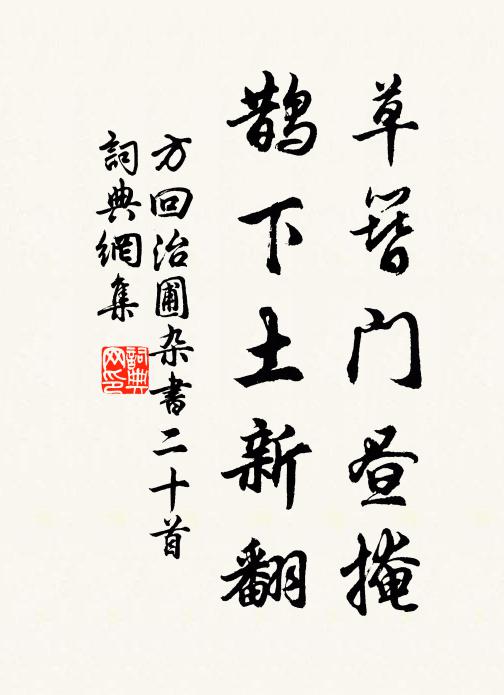 草簪门昼掩
鹊下土新翻
方回治圃杂書二十首
詞典網集
詞典网印